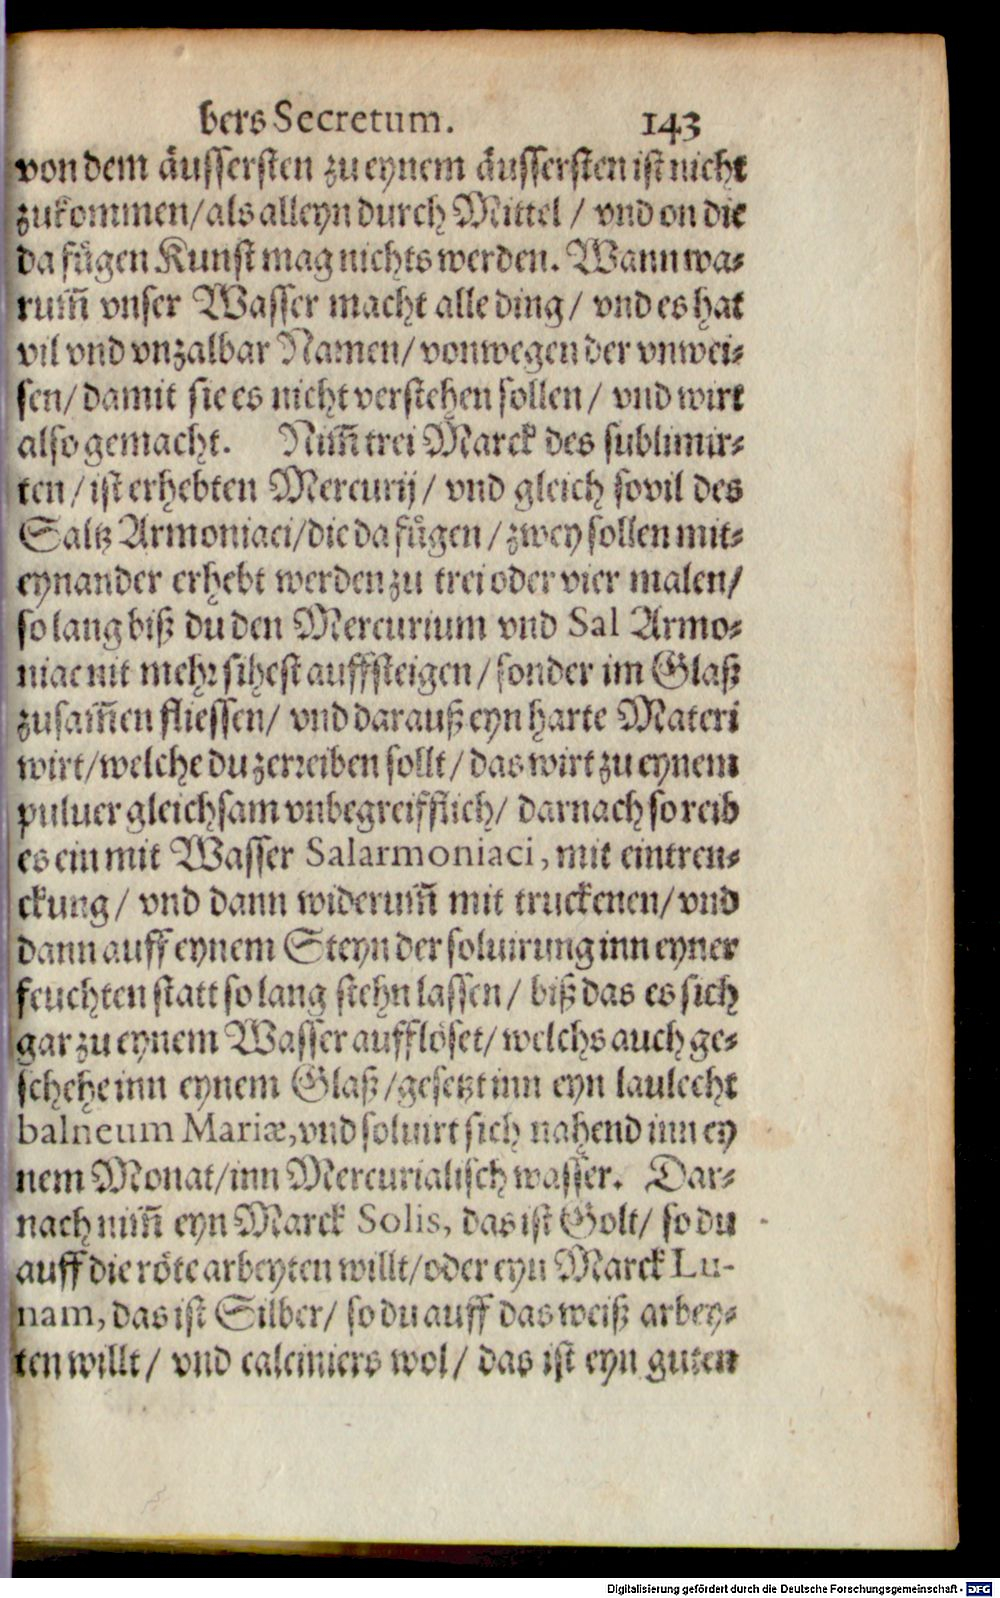 bers Secretum. 143
von dem äussersten zu eynem äussersten ist nicht
zukommen/ als alleyn durch Mittel / vnd on die
da fůgen Kunst mag nichts werden. Wann wa⸗
rum̃ vnser Wasser macht alle ding/ vnd es hat
vil vnd vnzalbar Namen/ von wegen der vnwei⸗
sen/ damit sie es nicht verstehen sollen / vnd wirt
also gemacht. Nim̃ trei Marck des sublimir⸗
ten / ist erhebten Mercurij / vnd gleich sovil des
Saltz Armoniaci/ die da fůgen / zwey sollen mit⸗
eynander erhebt werden zu trei oder vier malen/
so lang biß du den Mercurium vnd Sal Armo⸗
niac nit mehr sihest auffsteigen / sonder im Glaß
zusam̃en fliessen/ vnd darauß eyn harte Materi
wirt/ welche du zerreiben sollt / das wirt zu eynem
puluer gleichsam vnbegreifflich/ darnach so reib
es ein mit Wasser Salarmoniaci, mit eintren⸗
ckung / vnd dann widerum̃ mit truckenen/ vnd
dann auff eynem Steyn der soluirung inn eyner
feuchten statt so lang stehn lassen / biß das es sich
gar zu eynem Wasser aufflöset/ welchs auch ge⸗
schehe inn eynem Glaß /gesetzt inn eyn laulecht
balneum Mariæ, vnd soluirt sich nahend inn ey
nem Monat/ inn Mercurialisch wasser. Dar⸗
nach nim̃ eyn Marck Solis, das ist Golt/ so du
auff die röte arbeyten willt/ oder eyn Marck Lu-
nam, das ist Silber/ so du auff das weiß arbey⸗
ten willt / vnd calciniers wol / das ist eyn guten
Digitalisierung gefördert durch die Deutsche Forschungsgemeinschaft - DFG